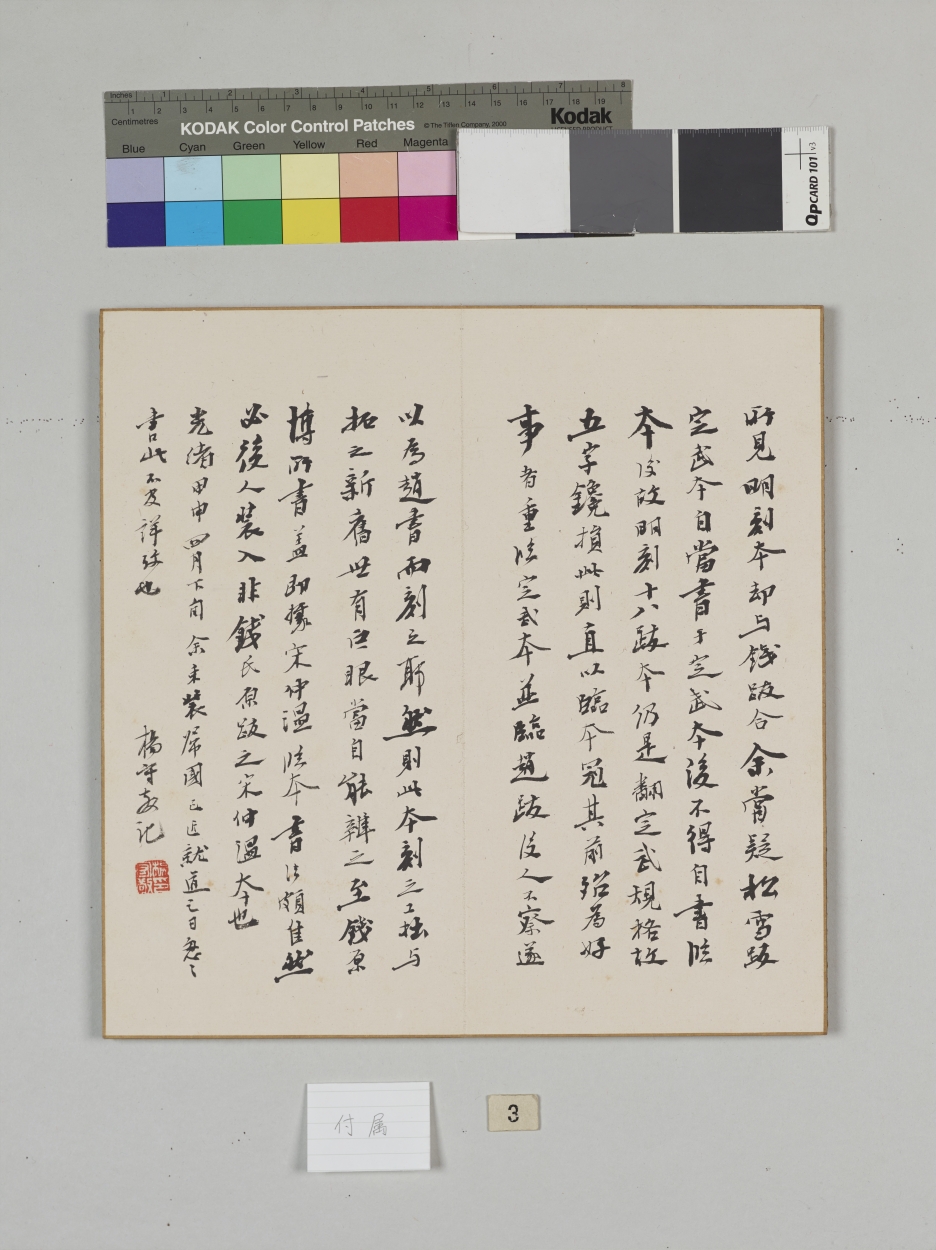 Inches 1 2 3 4 5 6 7 8
Centimetres 1 2 3 4 5 6 7 8 9 10 11 12 13 14 15 16 17 18 19
KODAK Color Control Patches © The Tiffen Company, 2000 Kodak
LICENSED PRODUCT
Blue Cyan Green Yellow Red Magenta
QPCARD 101 v3
所見明刻本却与錢跋合余嘗疑松雪跋
定武本自當書于定武本後不得自書臨
本後故明刻十八跋本仍是翻定武規格故
五字鑱損此則直以臨本冠其前殆為好
事者重臨定武本並臨趙跋後人不察遂
以為趙書而刻之耶然則此本刻之工拙与
拓之新舊世有巨眼當自能辨之至錢原
博所書蓋即據宋仲温臨本書法頗佳然
必後人裝入非錢氏原跋之宋仲温本也
光緒甲申四月下旬余束裝歸國已近就道之日怱〻
書此不及詳攷也
楊守敬記
付属
3